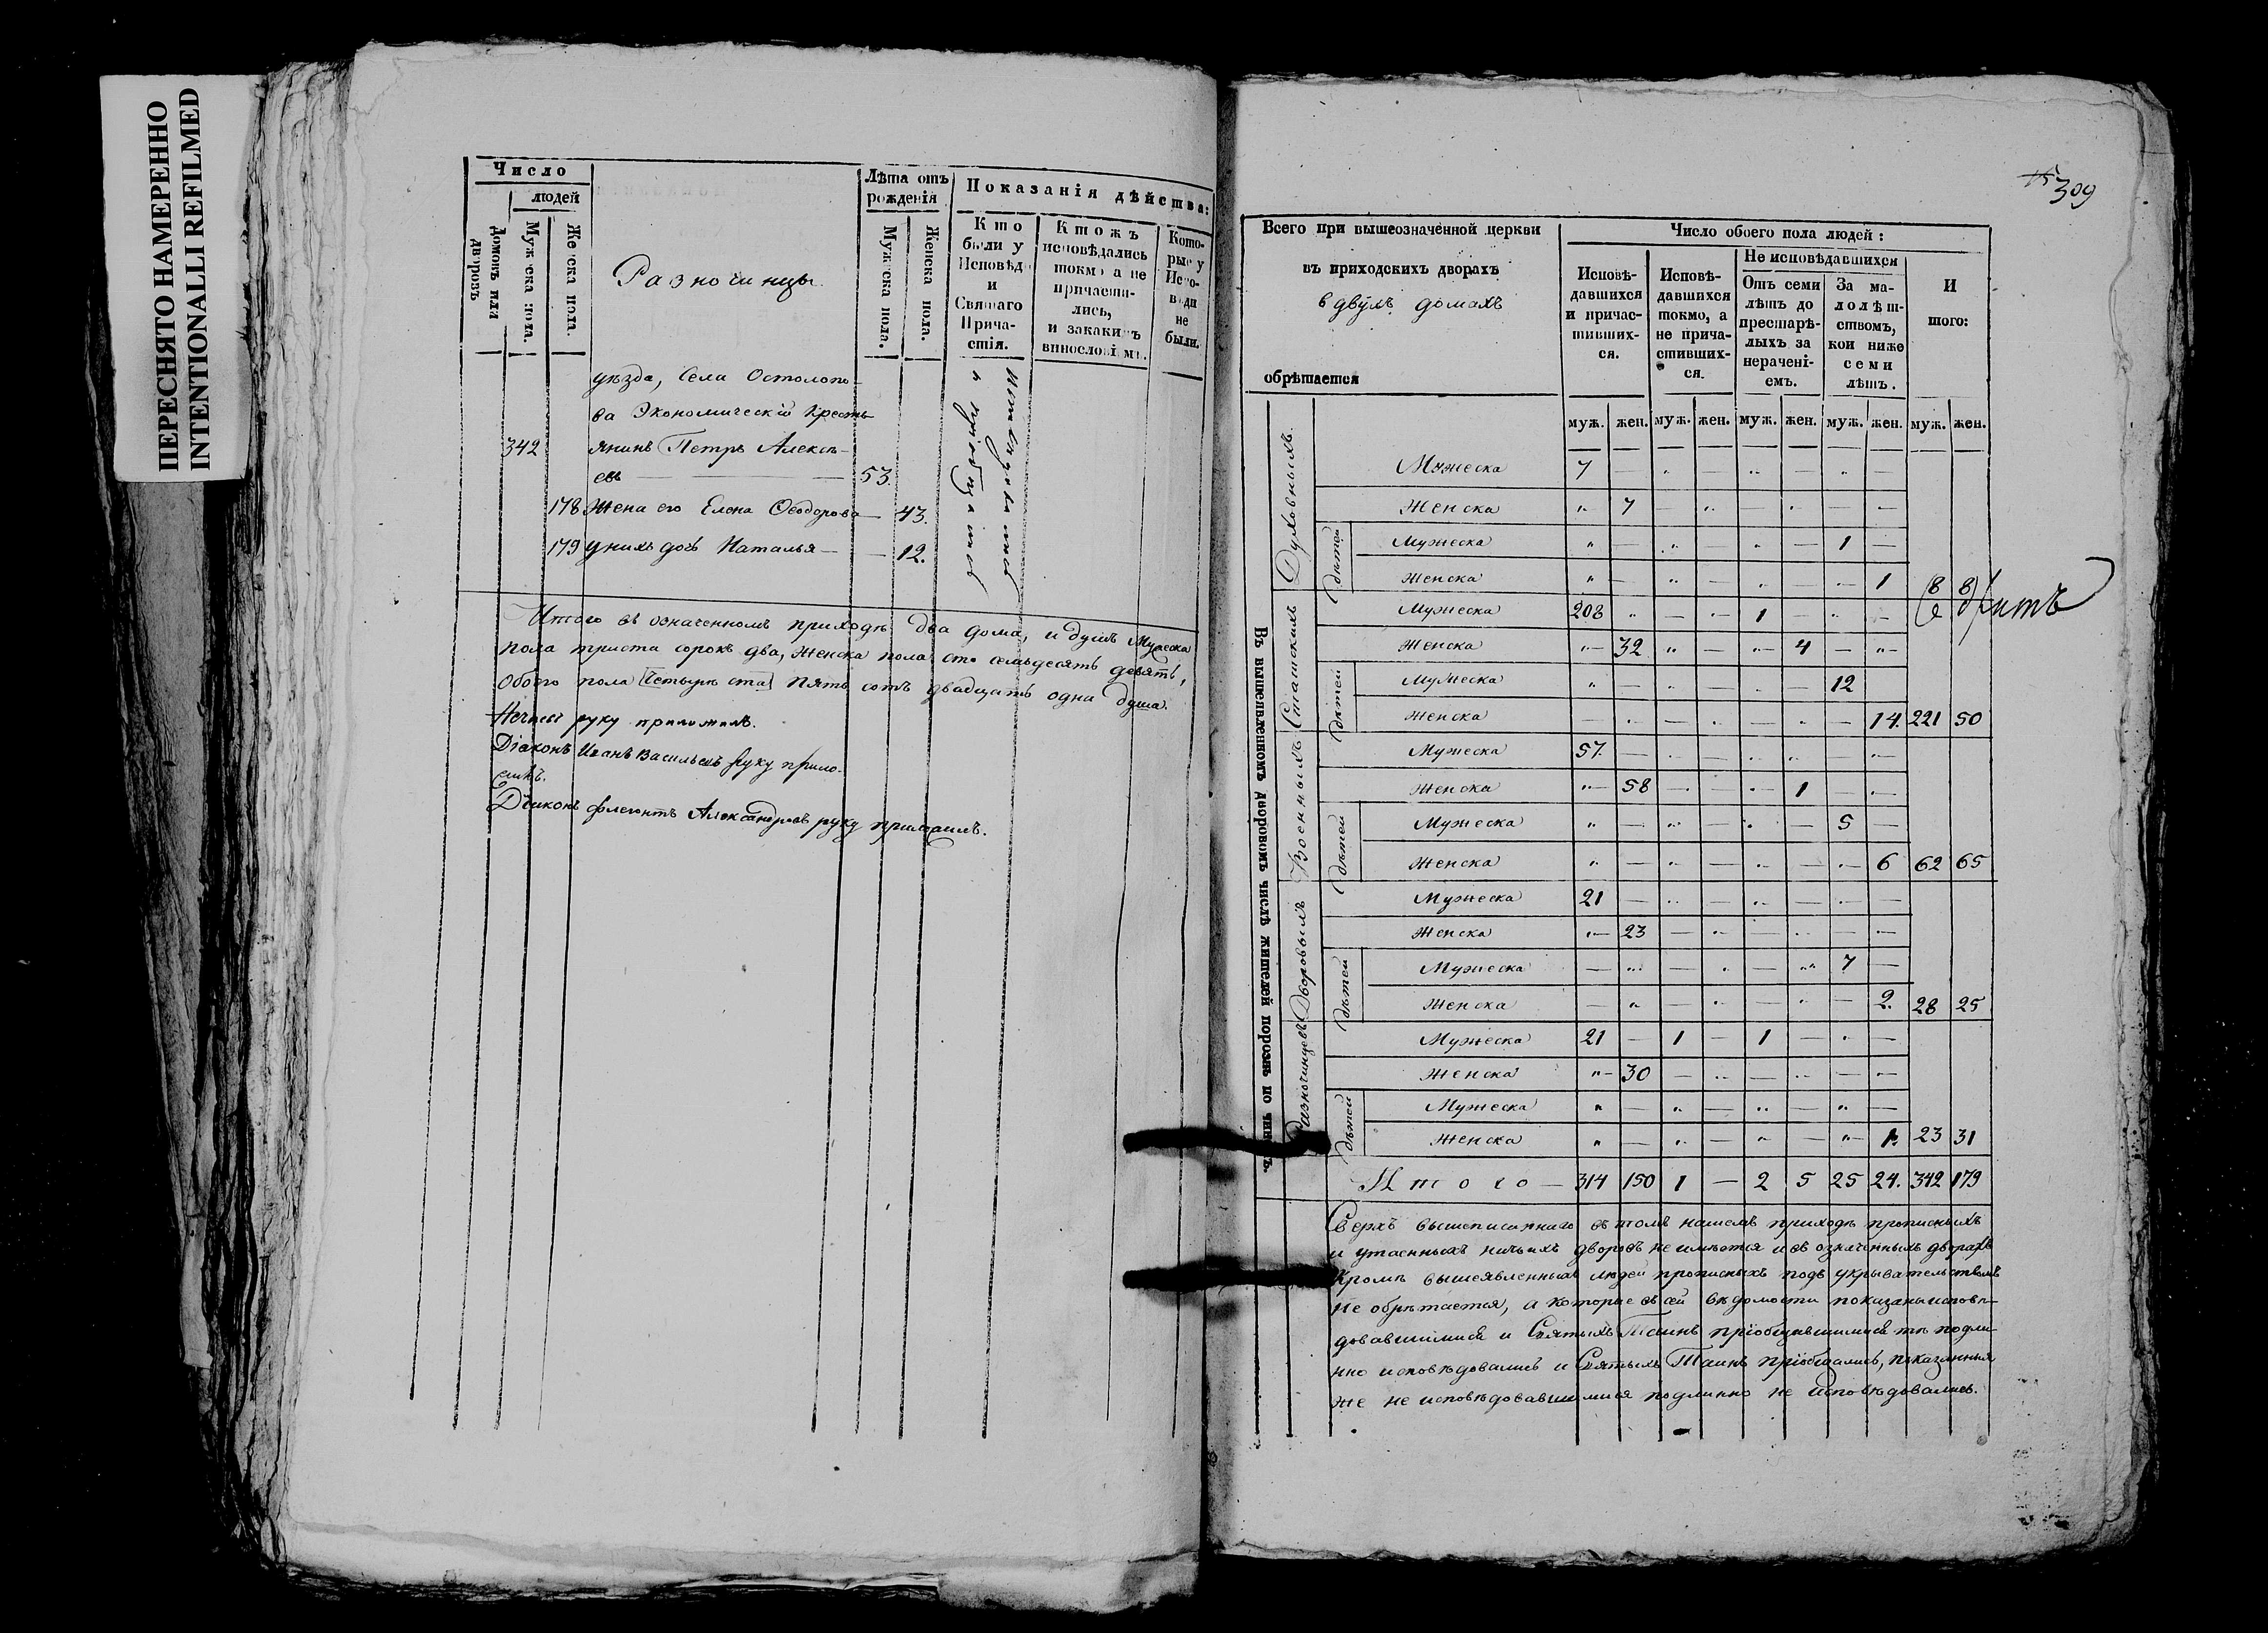 ПЕРЕСНЯТО НАМЕРЕННО
INTENTIONALLI REFILMED
Число
людей
домовъ или дворовъ
Мужеска пола.
Женска пола.
Разночинцы.
Лѣта отъ рожденія
Мужеска пола.
Женска пола.
Показанія дѣйства:
Кто были у Исповѣди и Святаго Причастія.
Ктожъ исповѣдались токмо а не причастились, и закакимъ винословіемъ.
Которые у Исповѣди не были.
уѣзда, Села Остолопо-
ва Экономическій Кресть-
342 янинъ Петръ Алексѣ-
евъ — 53.
178 Жена его Елена Ѳеодорова — 43.
179 у нихъ дочь Наталья — — 12.
Итого въ означенномъ приходѣ два дома, и душъ Мужеска
пола триста сорокъ два, женска пола сто семьдесятъ девять,
Обоего пола [четыре ста] пять сотъ двадцать одна душа.
руку приложилъ.
Діаконъ Иванъ Васильевъ руку прило-
жилъ.
Дьяконъ Флегонтъ Александровъ руку приложилъ.
309
Всего при вышеозначенной церкви
въ приходскихъ дворахъ
в двухъ домахъ
обрѣтается
Число обоего пола людей:
Исповѣдавшихся и причастившихся.
Исповѣдавшихся токмо, а не причастившихся.
Не исповѣдавшихся
Отъ семи лѣтъ до престарѣлыхъ за нераченіемъ.
За малолѣтствомъ, кои ниже семи лѣтъ.
И того:
муж. жен. муж. жен. муж. жен. муж. жен. муж. жен.
Въ вышеявленномъ дворовомъ числѣ жителей порознь по чинамъ.
Духовныхъ
Мужеска 7 — „ — „ — „ —
Женска „ 7 — „ — „ — „
дѣтей
Мужеска „ — „ — „ — 1 —
Женска „ — „ — „ — „ 1 8 8
Статскихъ
Мужеска 208 „ — „ 1 — „ —
Женска „ 32 „ — „ 4 — „
дѣтей
Мужеска „ — „ — „ — 12
Женска — „ — „ — „ — 14. 221 50
Военныхъ
Мужеска 57. — „ — „ „ — „
Женска „ 58 — „ „ 1 — „
дѣтей
Мужеска „ — „ — „ — 5 —
Женска „ — „ — „ — „ 6 62 65
Дворовыхъ
Мужеска 21 — „ — „ — „ —
Женска „ 23 — „ — „ — „
дѣтей
Мужеска — „ — „ — „ 7 —
Женска — „ — „ — „ — 2. 28 25
Разночинцевъ
Мужеска 21 — 1 — 1 — „ —
Женска „ 30 — „ — „ — „
дѣтей
Мужеска „ — „ — „ — „ —
Женска „ — „ — „ — „ 1. 23 31
Итого — 314 150 1 — 2 5 25 24. 342 179
Сверхъ вышеписаннаго въ томъ нашемъ приходѣ прописныхъ
и утаенныхъ ничьихъ дворовъ не имѣется и въ означенныхъ дворахъ
Кромѣ вышеявленныхъ людей прописныхъ подъ укрывательствомъ
не обрѣтается, а которые въ сей вѣдомости показаны исповѣ-
довавшимися и Святыхъ Таинъ пріобщившимися тѣ подли-
нно исповѣдовались и Святыхъ Таинъ пріобщались, показанныя
же не исповѣдовавшимися подлинно не исповѣдовались.